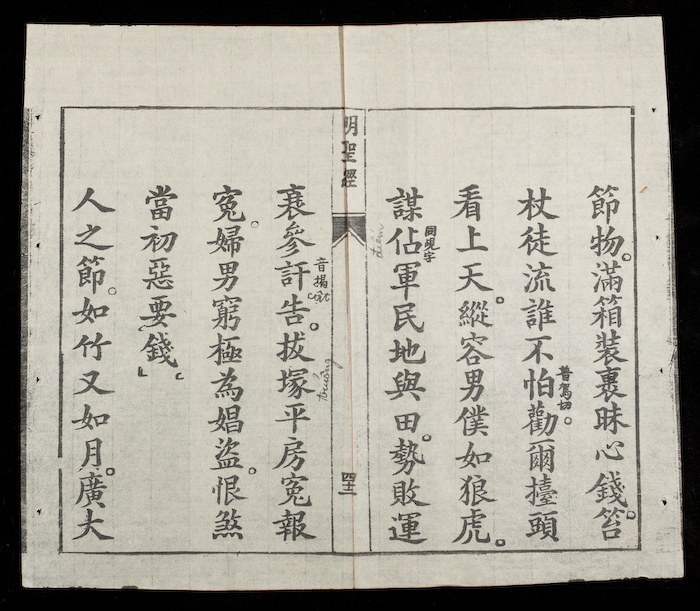 節物。滿箱裝裹昧心錢。笞
杖徒流誰不怕普駕切。勸爾擡頭
看上天。縱容男僕如狼虎。
謀佔同覘字軍民地與田。勢敗運
明聖經
四十二
衰參訐音揭告。拔塚平房寃報
寃。婦男窮極為娼盜。恨煞
當初惡要錢。
人之節。如竹又如月。廣大